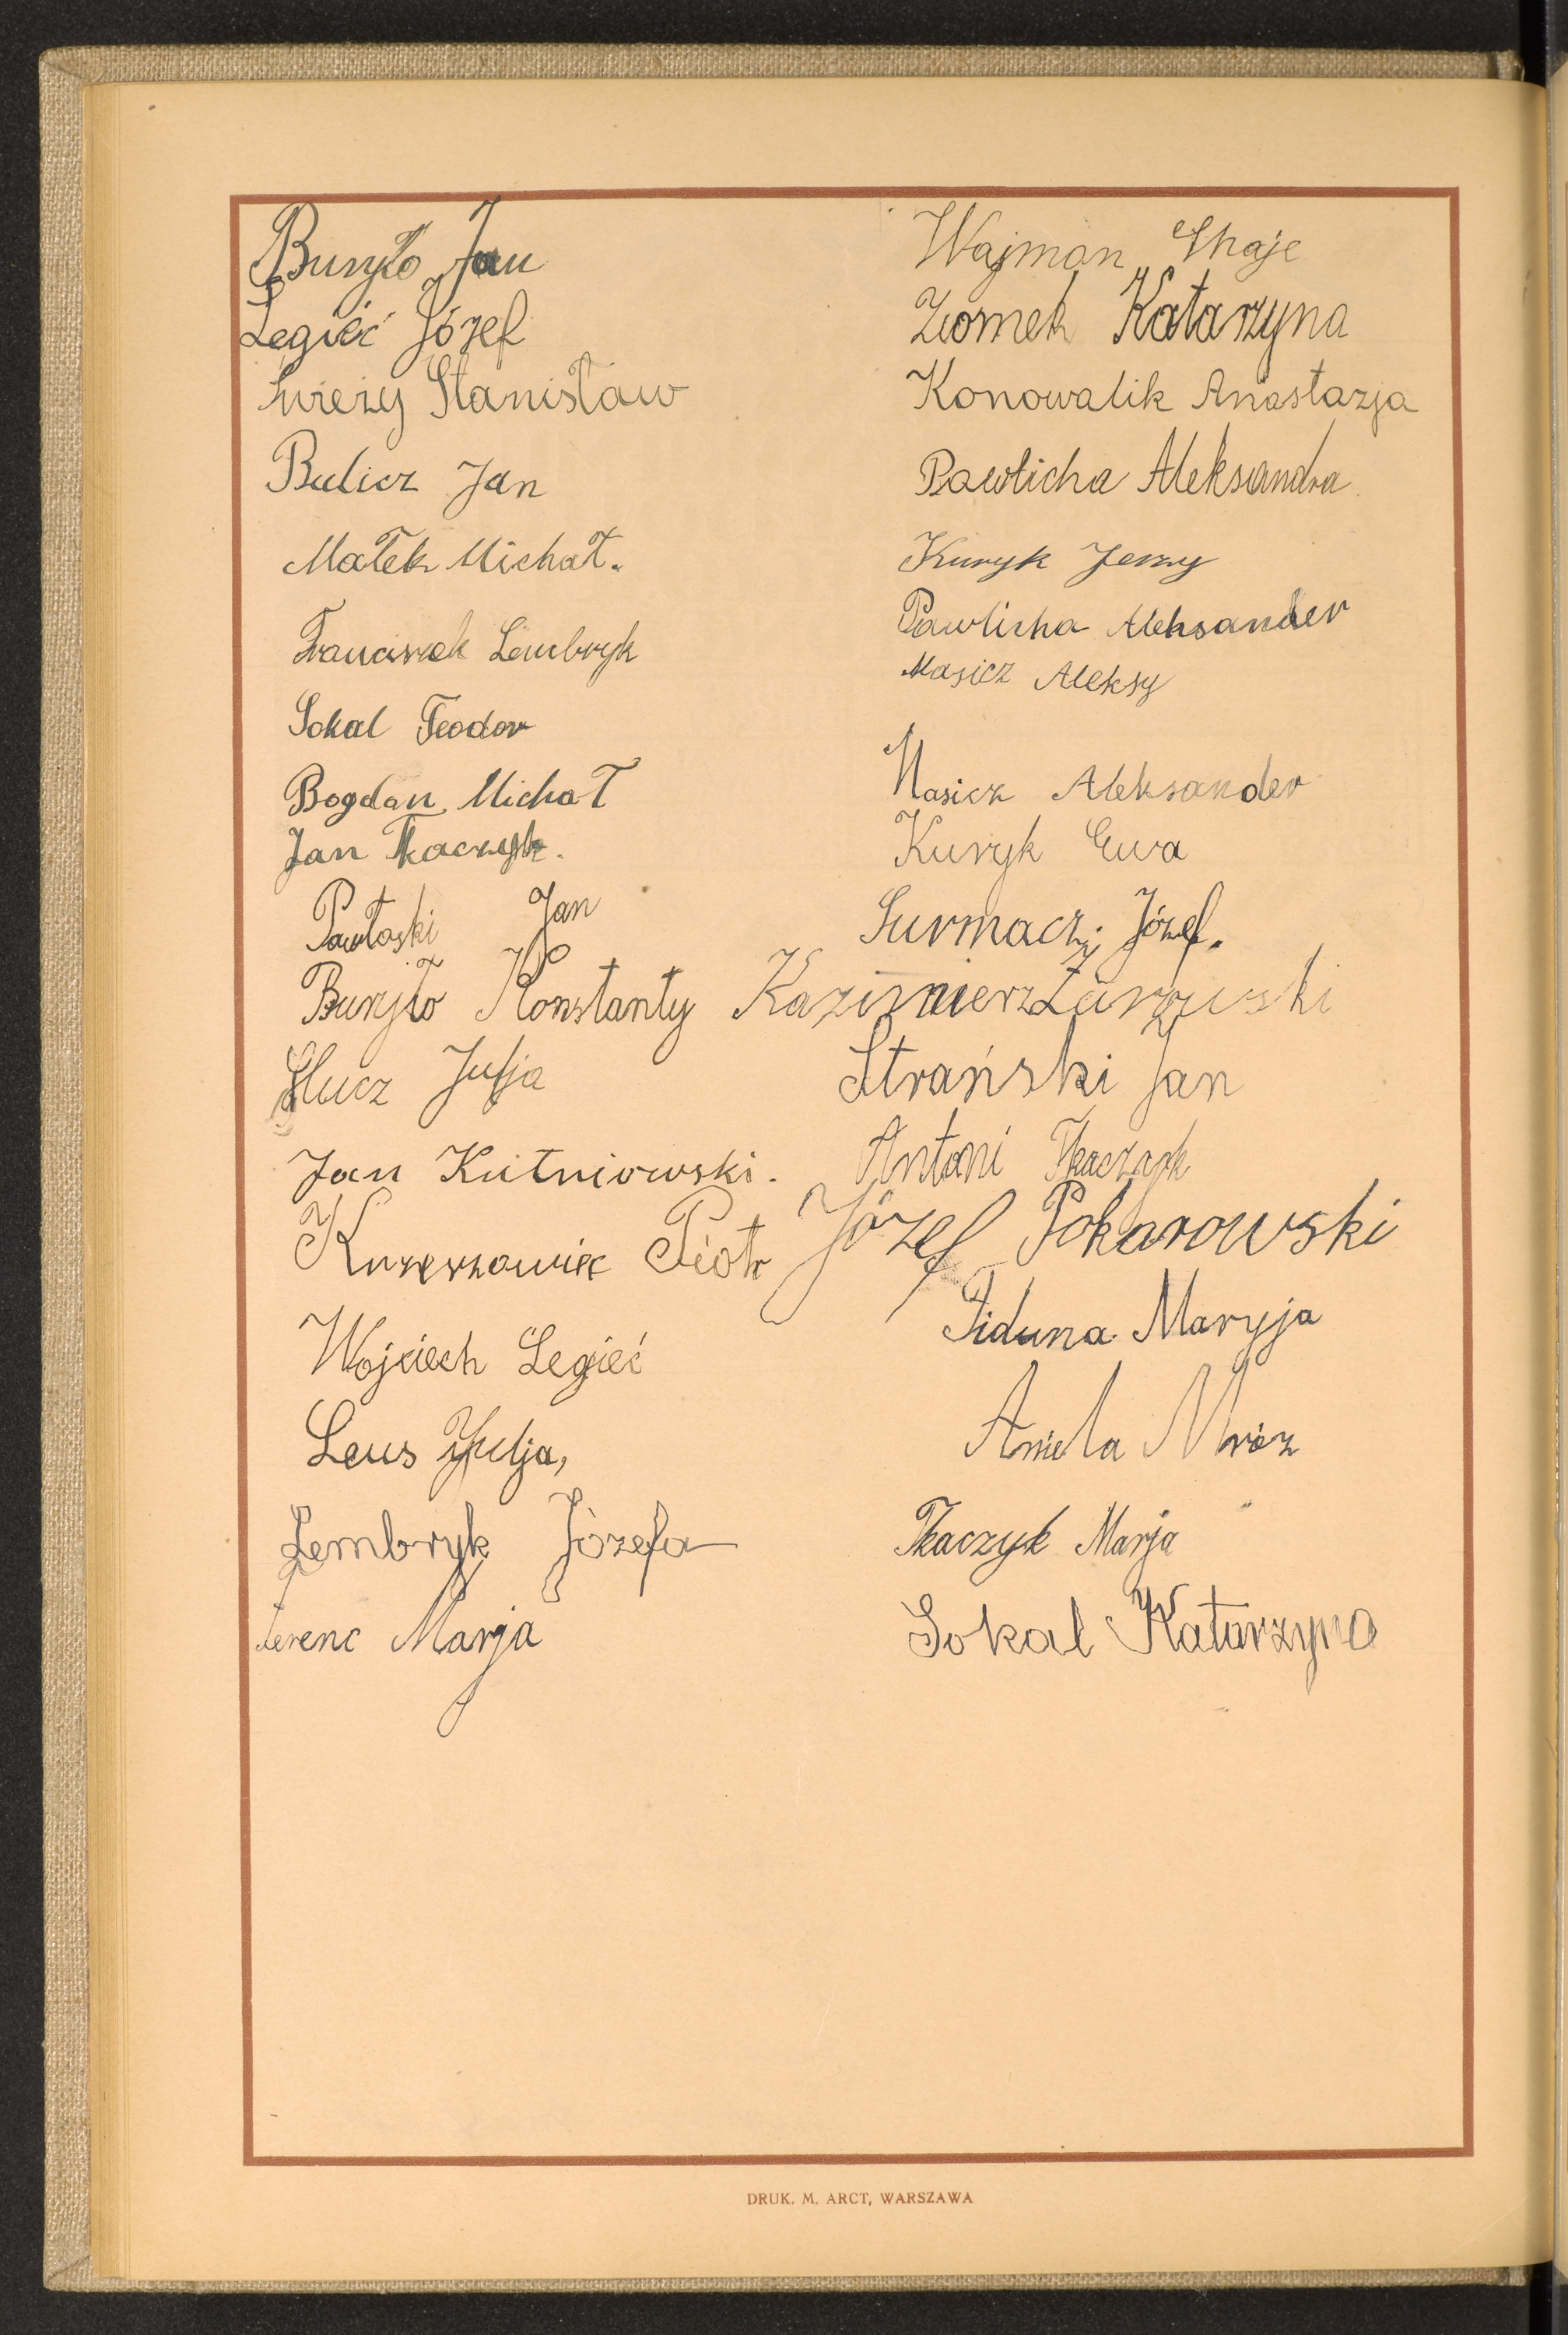 Buryło Jan
Legieć Józef
Świeży Stanisław
Bulicz Jan
Małek Michał.
Franciszek Lembryk
Sokal Teodor
Bogdan Michał
Jan Tkaczyk.
Pawłoski Jan
Buryło Konstanty
Hucz Julja
Jan Kutniowski.
Piotr
Wojciech Legieć
Leus Julja,
Lembryk Józefa
Ferenc Marja
Wajman Chaje
Ziomek Katarzyna
Konowalik Anastazja
Pawlicha Aleksandra
Kuryk Jerzy
Pawlicha Aleksander
Masicz Aleksy
Masicz Aleksander
Kuryk Ewa
Surmacz Józef.
Kazimierz Żurawski
Strański Jan
Antoni Tkaczyk
Józef Pokarowski
Fiduna Maryja
Aniela Mróz
Tkaczyk Marja
Sokal Katarzyna
DRUK. M. ARCT, WARSZAWA